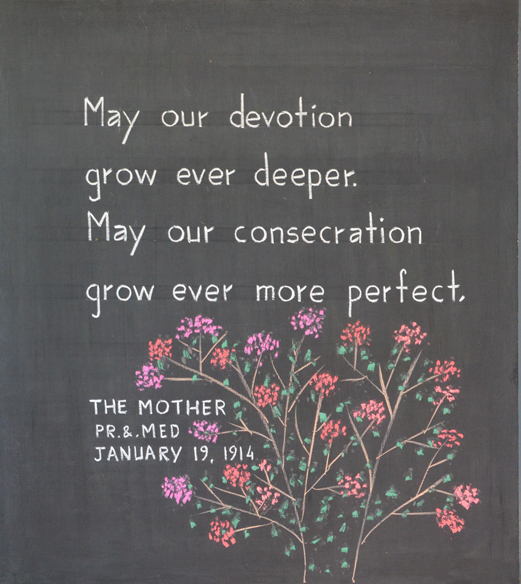 May our devotion
grow ever deeper.
May our consecration
grow ever more perfect.
THE MOTHER
PR.&.MED
JANUARY 19, 1914